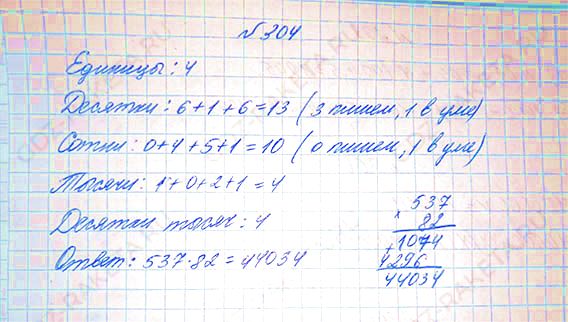 №304
Единицы: 4
Десятки: 6+1+6=13 (3 пишем, 1 в уме)
Сотни: 0+4+5+1=10 (0 пишем, 1 в уме)
Тысячи: 1+0+2+1=4
Десятки тысяч: 4
Ответ: 537·82=44034
537
× 82
1074
+ 4296
44034